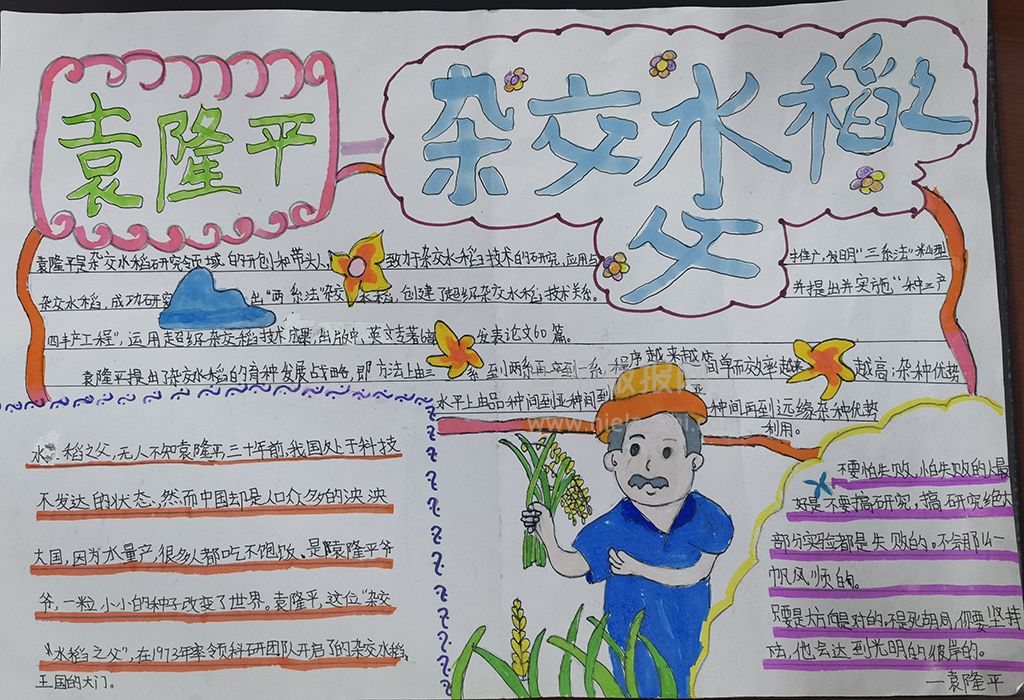 袁隆平
杂交水稻之
父
袁隆平是杂交水稻研究领域的开创和带头人 致力于杂交水稻技术的研究、应用与 推广,发明"三系法"籼型
杂交水稻,成功研究 出"两系法"杂交水稻,创建了超级杂交水稻技术体系。 并提出并实施"种三产
四丰产工程",运用超级杂交稻技术成果,出版中、英文专著6部 发表论文60篇。
袁隆平提出了杂交水稻的育种发展战略,即方法上由三 系到两系再到一系,程序越来越简单而效率越来 越高;杂种优势
水平上由品种间到亚种间到 种间再到远缘杂种优势
利用。
水 稻之父,无人不知袁隆平三十年前,我国处于科技
不发达的状态,然而中国却是人口众多的泱泱
大国,因为水量产,很多人都吃不饱饭、是袁隆平爷
爷,一粒小小的种子改变了世界。袁隆平,这位"杂交
水稻之父",在1973年率领科研团队开启了的杂交水稻
王国的大门。
不要怕失败,怕失败的人最
好是不要搞研究,搞研究绝大
部分实验都是失败的。不会那么一
帆风顺的。
只要是大方向是对的,不是死胡同,你要坚持
下去,他会达到光明的彼岸的。
—袁隆平